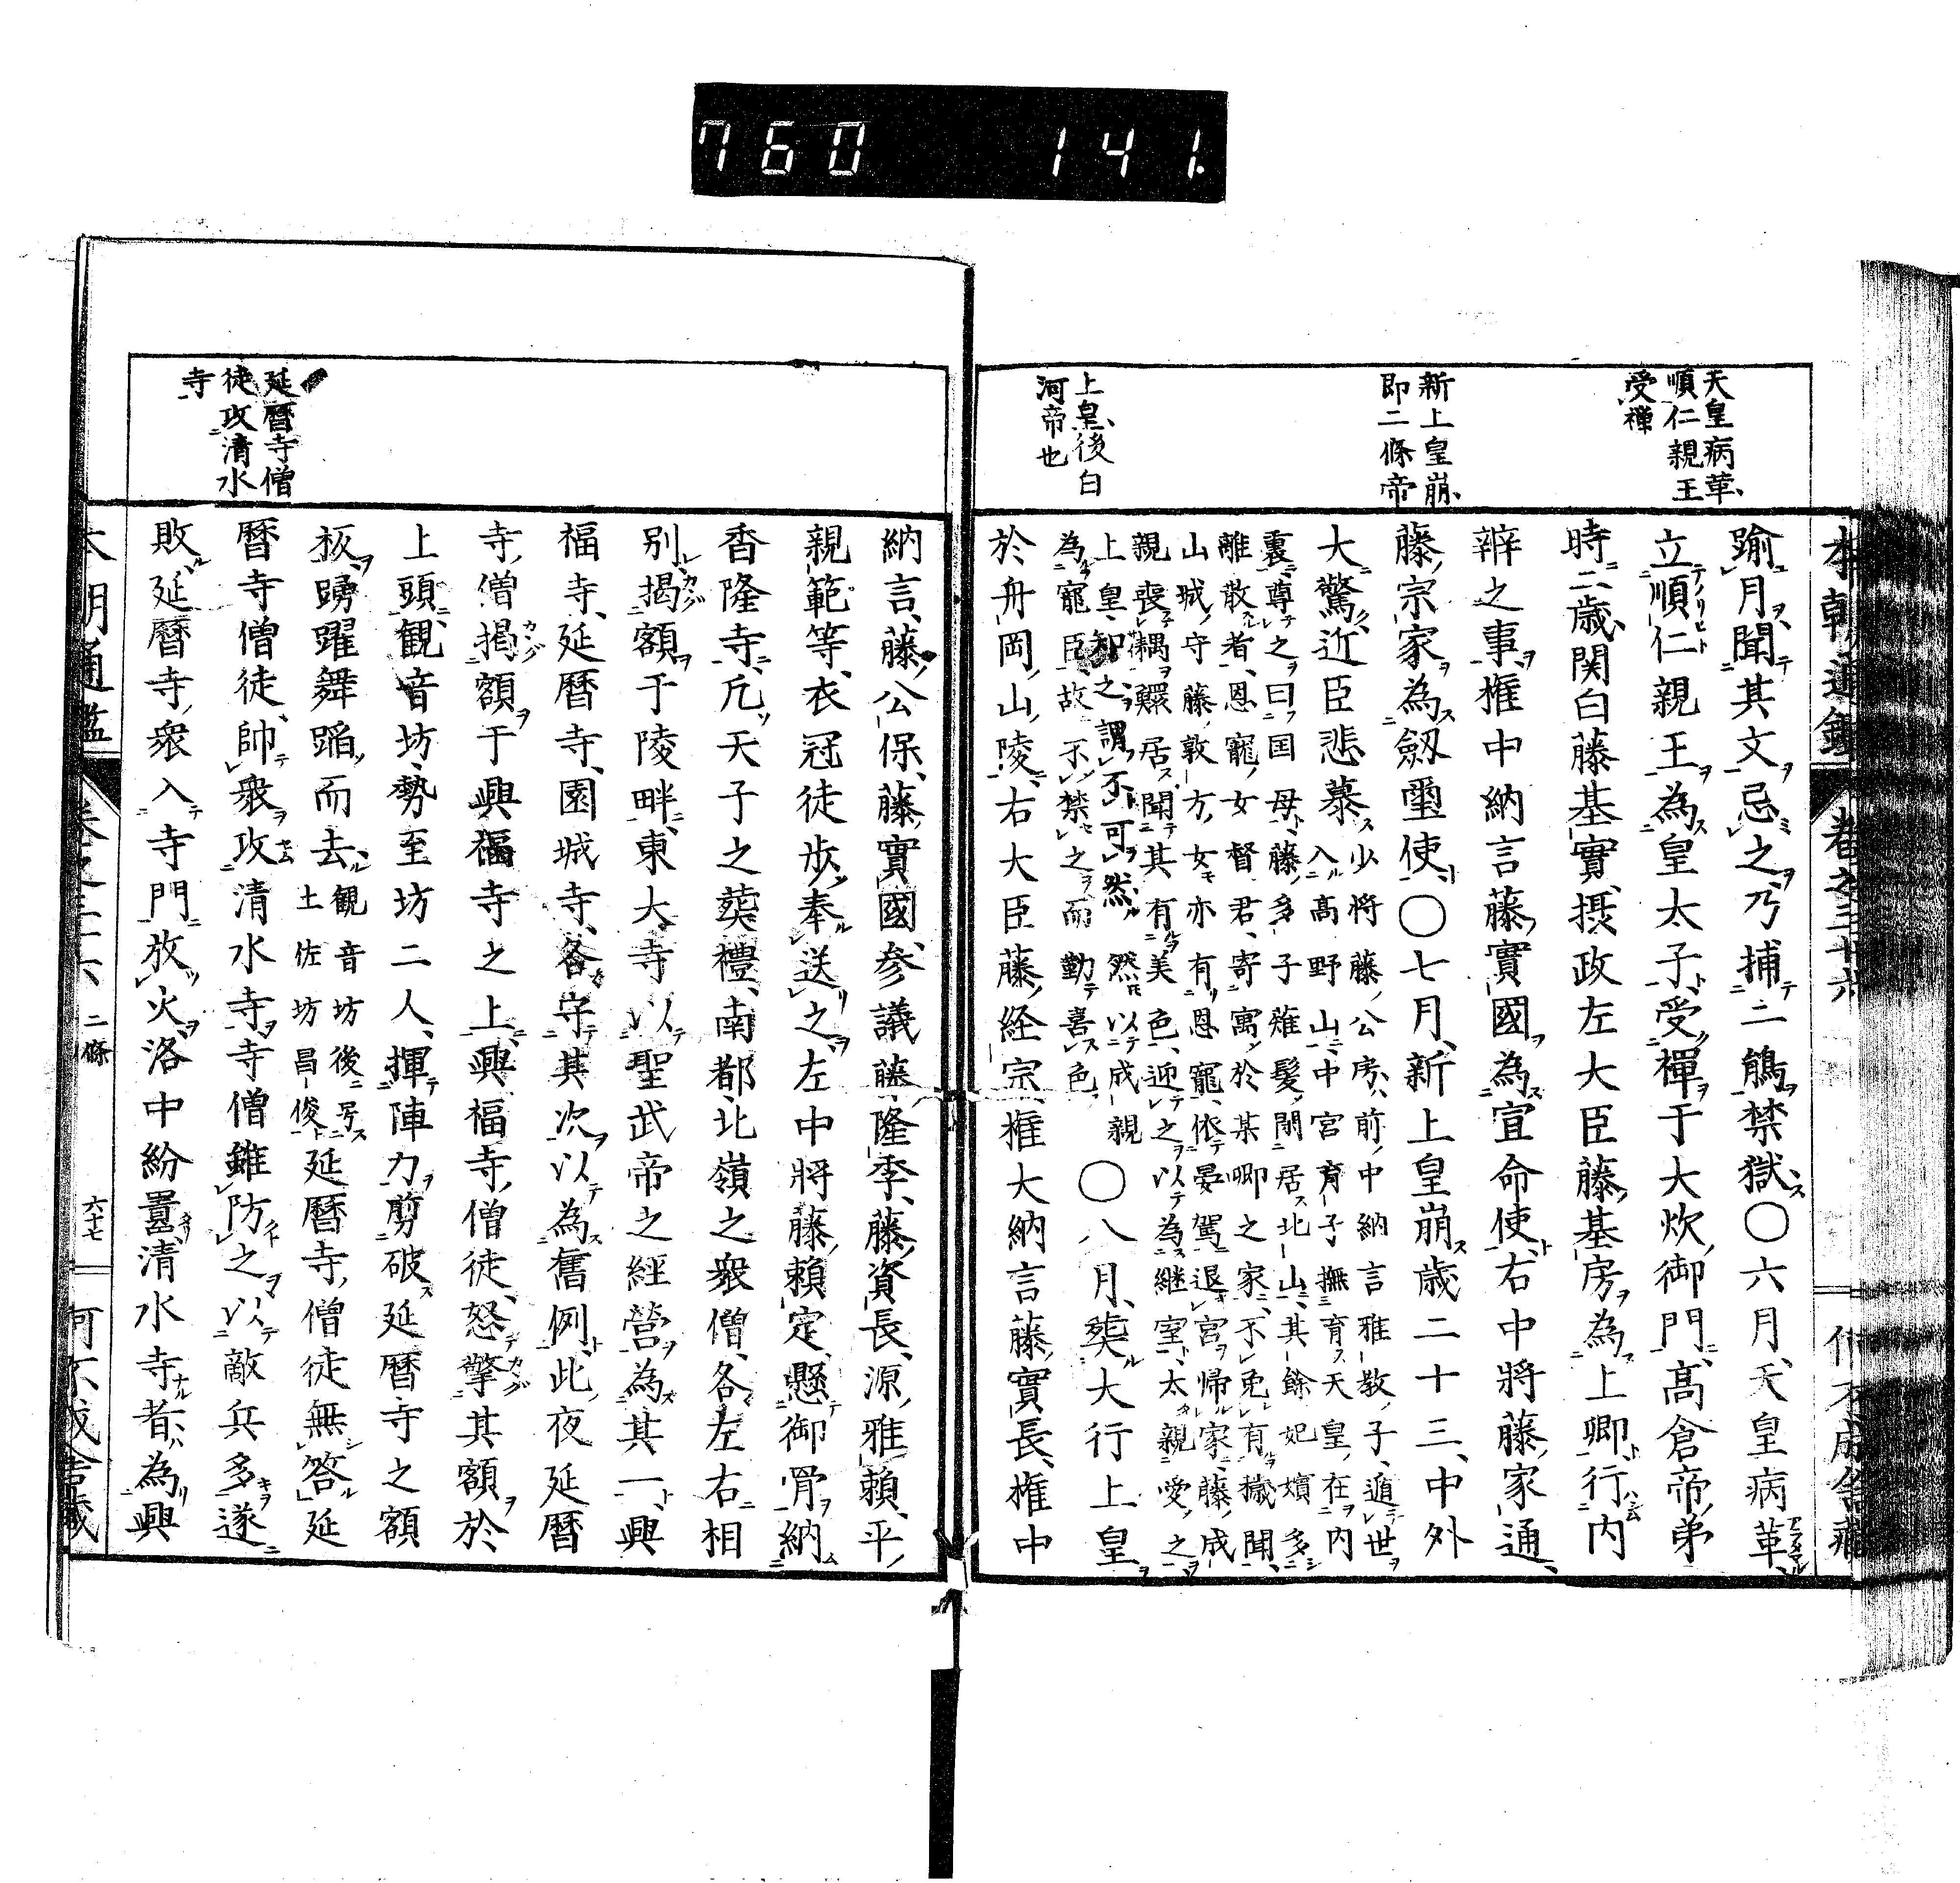 760 141
天皇病革、
順仁親王
受禅
新上皇崩、
即二條帝
上皇、後白
河帝也
踰月、聞其文忌之、乃捕二鵤禁獄、〇六月、天皇病革、
立順仁親王為皇太子、受禪于大炊御門、高倉帝弟
時二歳、関白藤基實、摂政左大臣藤基房為上卿、行内
辨之事、権中納言藤實國為宣命使、右中將藤家通、
藤宗家為劔璽使、〇七月、新上皇崩、歳二十三、中外
大驚、近臣悲慕
少将藤公房、前中納言雅教子、遁世
入高野山、中宮育子撫育天皇、在内
裏、尊之曰国母、藤多子薙髪、閑居北山、其餘妃嬪多
離散者、恩寵女督君、寄寓於某卿之家、不免有穢聞、
山城守藤敦方女亦有恩寵、依晏駕退宮帰家、藤成
親喪耦鰥居、聞其有美色、迎之以為継室、太親愛之
上皇知之、謂不可然、然以成親
為寵臣、故不禁之、而勤喜色、
〇八月、葬大行上皇
於舟岡山陵、右大臣藤経宗、権大納言藤實長、権中
納言藤公保、藤實國、参議藤隆季、藤資長、源雅頼、平
親範等、衣冠徒歩、奉送之、左中將藤頼定、懸御骨納
香隆寺、凢天子之葬禮、南都北嶺之衆僧、各左右相
別、揭額于陵畔、東大寺以聖武帝之經営為其一、興
福寺、延暦寺、園城寺、各守其次以為舊例、此夜延暦
寺僧揭額于興福寺之上、興福寺僧徒怒、擎其額於
上頭、観音坊、勢至坊二人、揮陣力剪破延暦寺之額
板、踴躍舞蹈而去、
観音坊後号
土佐坊昌俊
延暦寺僧徒無答、延
暦寺僧徒、帥衆攻清水寺、寺僧雖防之、以敵兵多、遂
敗、延暦寺衆入寺門、放火、洛中紛囂、清水寺者為興
延暦寺僧
徒攻清水
寺
本朝通鑑 卷之三十六 二條 六十七